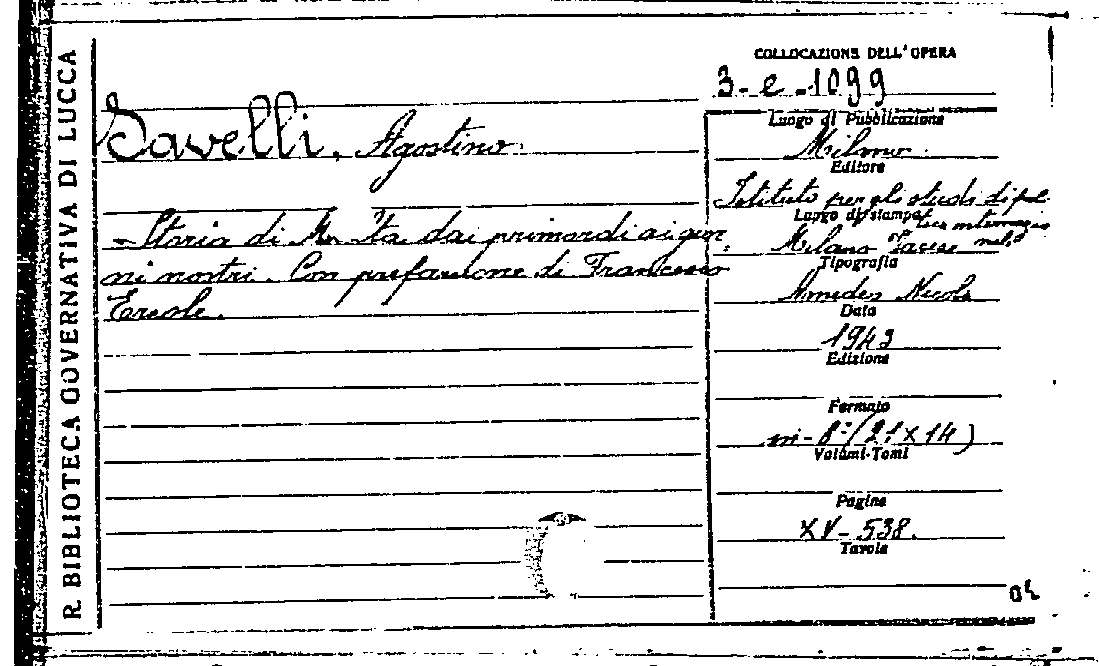 R. BIBLIOTECA GOVERNATIVA DI LUCCA
COLLOCAZIONE DELL'OPERA
3-e-1099
Savelli, Agostino.
- Storia di Malta dai primordi ai gior
ni nostri. Con prefazione di Francesco
Ercole.
Luogo di Pubblicazione
Milano
Editore
Istituto per gli studi di pol
Luogo di stampa
Milano Varese
Tipografia
Amedeo Nicola
Data
1943
Edizione
Formato
in-8º (21 x 14)
Volumi-Tomi
Pagine
XV-538.
Tavole